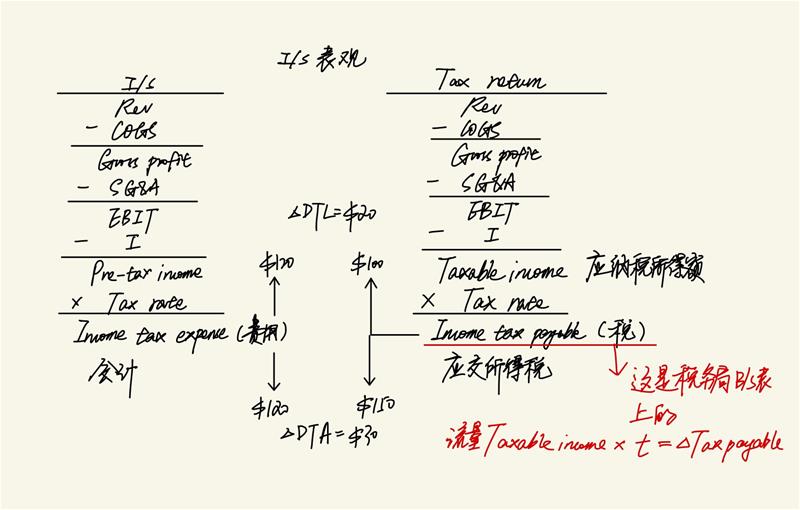 I/S 表观
I/S
Rev
- COGS
Gross profit
- SG&A
EBIT
- I
Pre-tax income
× Tax rate
Income tax expense (费用)
会计
△DTL=$20
$120
$100
$100
$150
△DTA=$30
Tax return
Rev
- COGS
Gross profit
- SG&A
EBIT
- I
Taxable income 应纳税所得额
× Tax rate
Income tax payable (税)
应交所得税
这是税务局B/S表
上的
流量Taxable income × t = △Tax payable